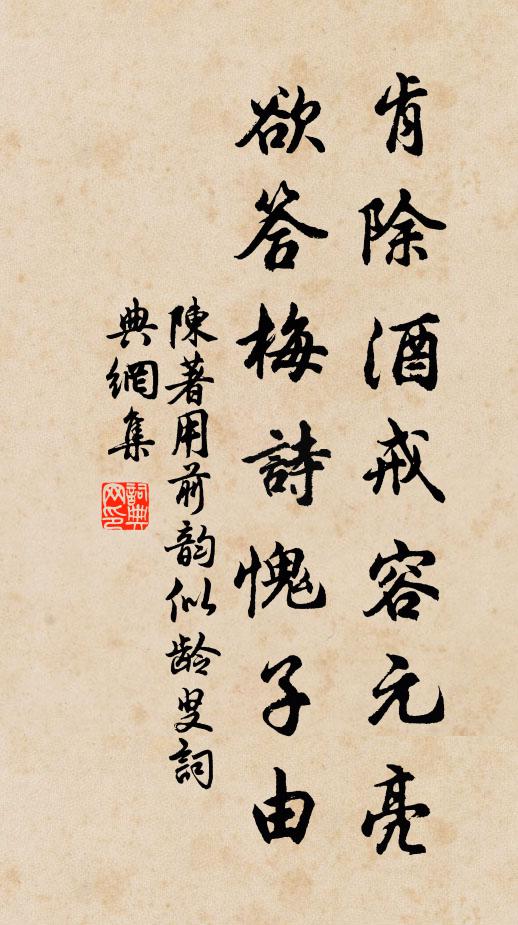 肯除酒戒容元亮
欲答梅詩愧子由
陳著用前韵似龄叟詞
典網集
詞典
网印